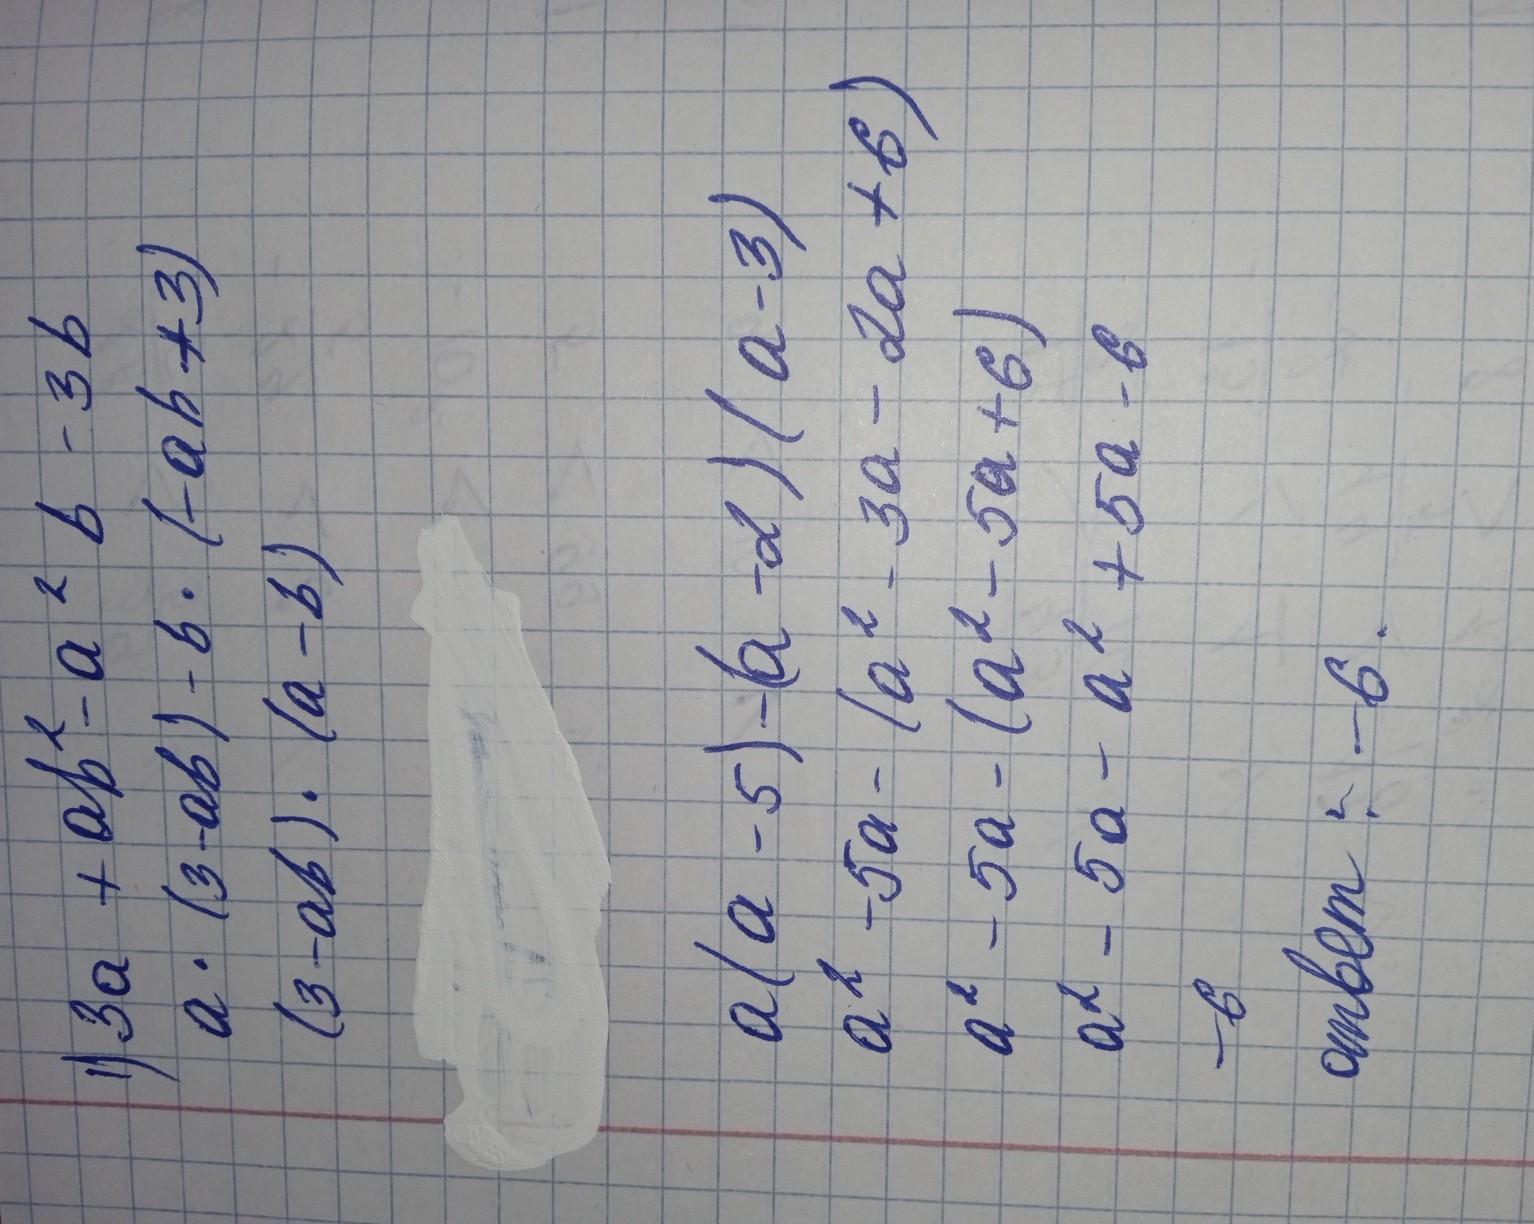 1) 3a + ab² - a² b - 3b
a · (3 - ab) - b · (-ab + 3)
(3 - ab) · (a - b)
a(a - 5) - (a - 2)(a - 3)
a² - 5a - (a² - 3a - 2a + 6)
a² - 5a - (a² - 5a + 6)
a² - 5a - a² + 5a - 6
-6
ответ: -6.